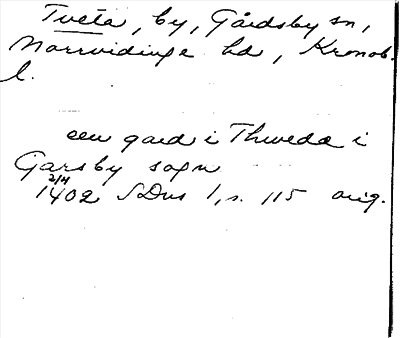 Tveta, by, Gårdsby sn,
Norrvidinge hd, Kronob.
l.
een gard i Thweda i
Garsby sogn
2/4
1402 SDns 1, s. 115 orig.